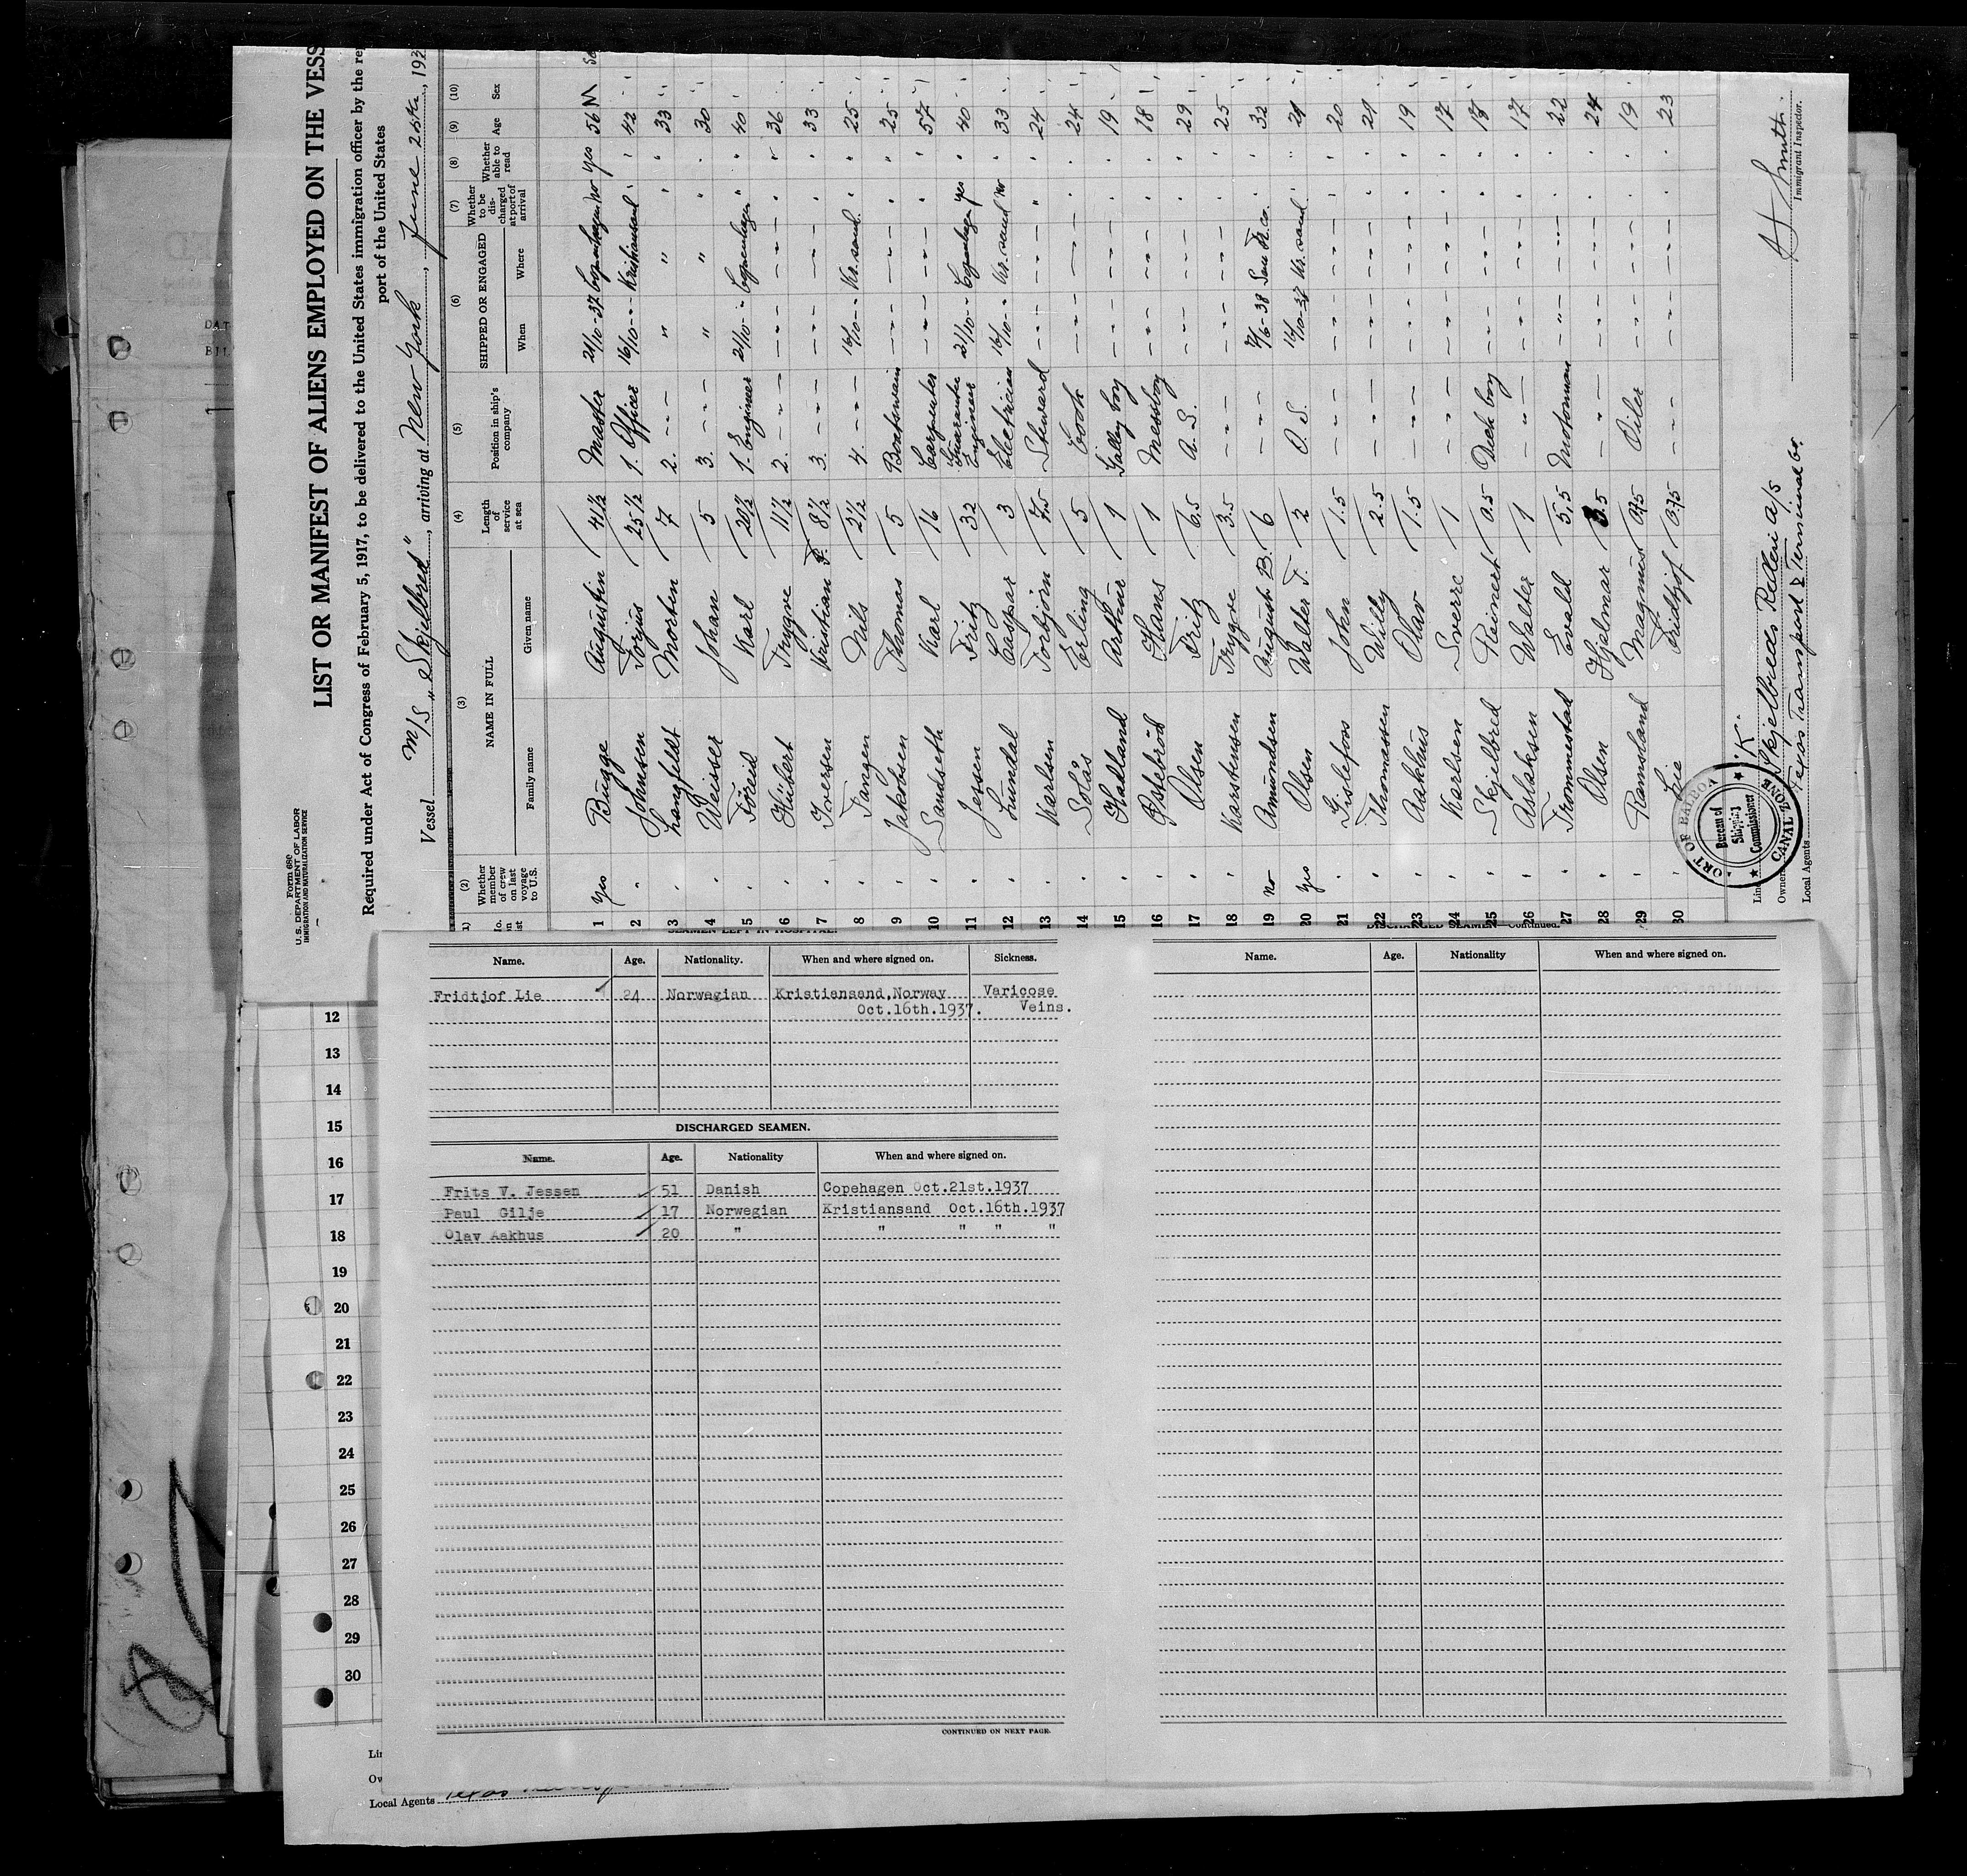 Form 680
U. S. DEPARTMENT OF LABOR
IMMIGRATION AND NATURALIZATION SERVICE
LIST OR MANIFEST OF ALIENS EMPLOYED ON THE VESS
Required under Act of Congress of February 5, 1917, to be delivered to the United States immigration officer by the re
port of the United States
Vessel M/S "Skjelbred", arriving at New York, June 20th, 193
(2) (3) (4) (5) (6) (7) (8) (9) (10)
Whether member of crew on last voyage to U.S. NAME IN FULL Length of service at sea Position in ship's company SHIPPED OR ENGAGED Whether to be discharged at port of arrival Whether able to read Age Sex
Family name Given name When Where
1 Yes Bugge Augustin 41½ Master 21/10-37 Copenhagen No Yes 56 M
2 " Johnsen Torjus 25½ 1. Officer 16/10 -- Kristiansand " " 42 "
3 " Langfeldt Morten 7 2. --- " " " " 33 "
4 " Weisser Johan 5 3. --- " " " " 30 "
5 " Föreid Karl 20½ 1. Engineer 21/10 -- Copenhagen " " 40 "
6 " Hübert Trygve 11½ 2. --- --- --- " " 36 "
7 " Iversen Kristian F. 8½ 3. --- --- --- " " 33 "
8 " Tangen Nils 2½ 4. --- 16/10 -- Kr.sand " " 25 "
9 " Jakobsen Thomas 5 Boatswain --- --- " " 25 "
10 " Sandseth Karl 16 Carpenter --- --- " " 57 "
11 " Jessen Fritz 32 Guarantee Engineer 21/10 -- Copenhagen Yes " 40 "
12 " Lundal Caspar 3 Electrician 16/10 -- Kr.sand No " 33 "
13 " Karlsen Torbjörn 7.5 Steward --- --- " " 24 "
14 " Solås Erling 5 Cook --- --- " " 24 "
15 " Hadland Arthur 1 Galley boy --- --- " " 19 "
16 " Østebröd Hans 1 Messboy --- --- " " 18 "
17 " Olsen Fritz 6.5 A. S. --- --- " " 29 "
18 " Karstensen Trygve 3.5 --- --- --- " " 25 "
19 No Amundsen August B. 6 --- /6-38 San Fr.co. " " 32 "
20 Yes Olsen Walter F. 2 O. S. 16/10-37 Kr.sand " " 21 "
21 " Gislefoss John 1.5 --- --- --- " " 20 "
22 " Thomassen Willy 2.5 --- --- --- " " 21 "
23 " Aakhus Olav 1.5 --- --- --- " " 19 "
24 " Karlsen Sverre 1 --- --- --- " " 17 "
25 " Skjelbred Reinert 0.5 Deck boy --- --- " " 18 "
26 " Aslaksen Walter 1 --- --- --- " " 17 "
27 " Trommestad Evald 5.5 Motorman --- --- " " 22 "
28 " Olsen Hjalmar 3.5 --- --- --- " " 24 "
29 " Ramsland Magnus 0.75 Oiler --- --- " " 19 "
30 " Lie Fridtjof 0.75 --- --- --- " " 23
Line
Owners Skjelbreds Rederi a/s
Local Agents Texas Transport & Terminal Co.
PORT OF BALBOA
Bureau of Shipping Commissioner
CANAL ZONE
Smith
Immigrant Inspector.
SEAMEN LEFT IN HOSPITAL.
Name. Age. Nationality. When and where signed on. Sickness.
Fridtjof Lie 24 Norwegian Kristiansand,Norway Varicose
Oct.16th.1937. Veins.
DISCHARGED SEAMEN.
Name. Age. Nationality When and where signed on.
Frits V. Jessen 51 Danish Copehagen Oct.21st.1937
Paul Gilje 17 Norwegian Kristiansand Oct.16th.1937
Olav Aakhus 20 " " " " "
CONTINUED ON NEXT PAGE.
DISCHARGED SEAMEN—Continued.
Name. Age. Nationality When and where signed on.
12
13
14
15
16
17
18
19
20
21
22
23
24
25
26
27
28
29
30
Lin
Ow
Local Agents Texas